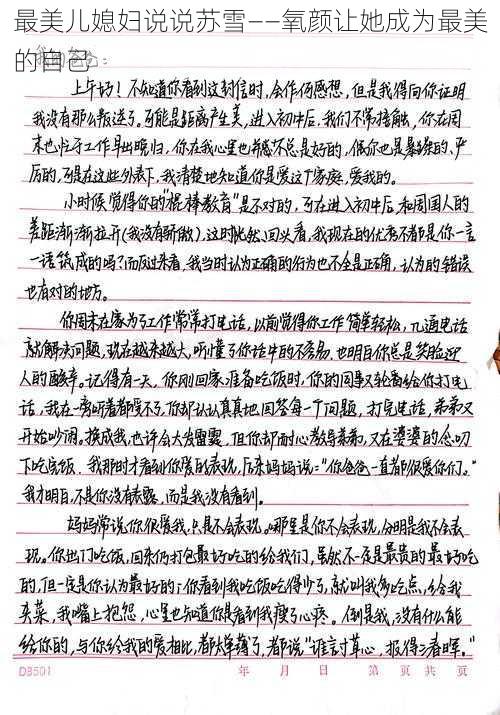 最美儿媳妇说说苏雪——氧颜让她成为最美
的自己
上午好！不知道你看到这封信时，会作何感想，但是我得向你证明
我没有那么叛逆了。可能是距离产生美，进入初中后，我们不常接触，你在周
末也忙于工作早出晚归，你在我心里也
的，可是在这些外表下，我清楚地知道你是爱这个家庭，爱我的。
小时候觉得你的"棍棒教育"是不对的，可在进入初中后，和周围人的
差距渐渐拉开（我没有骄傲），这时此然回头看，我现在的优秀不都是你一言
一语筑成的吗？而反过来看，我当时认为正确的行为也不全是正确，认为的错误
也有对的地方。
你周末在家为了工作常常打电话，以前觉得你工作简单轻松，几通电话
就解决问题，现在越来越大，听懂了你话中的不容易，也明白你总是笑脸迎
人的酸辛。记得有一天，你刚回家准备吃饭时，你的同事又轮番给你打电
话，我在一旁听着都受不了，你却认认真真地回答每一个问题，打完电话，弟弟又
开始吵闹。换成我，也许会大发雷霆，但你却耐心教导弟弟，又在婆婆的念叨
下吃完饭。我那时才看到你爱的表现，后来妈妈说："你爸爸一直都很爱你们。"
我才明白，不是你没有表露，而是我没有看到。
妈妈常说你很爱我，只是不会表现。哪里是你不会表现，分明是我不会表
现。你出门吃饭，回来仍打包最好吃的给我们，虽然不一定是最贵的最好吃
的，但一定是你认为最好的；你看到我吃饭吃得少了，就叫我多吃点，给我
夹菜，我嘴上抱怨，心里也知道你是看到我瘦了心疼。倒是我，没有什么能
给你的，与你给我的爱相比，都太单薄了，都说"谁言寸草心，报得三春晖。"
DB501 年 月 日 第 页 共 页